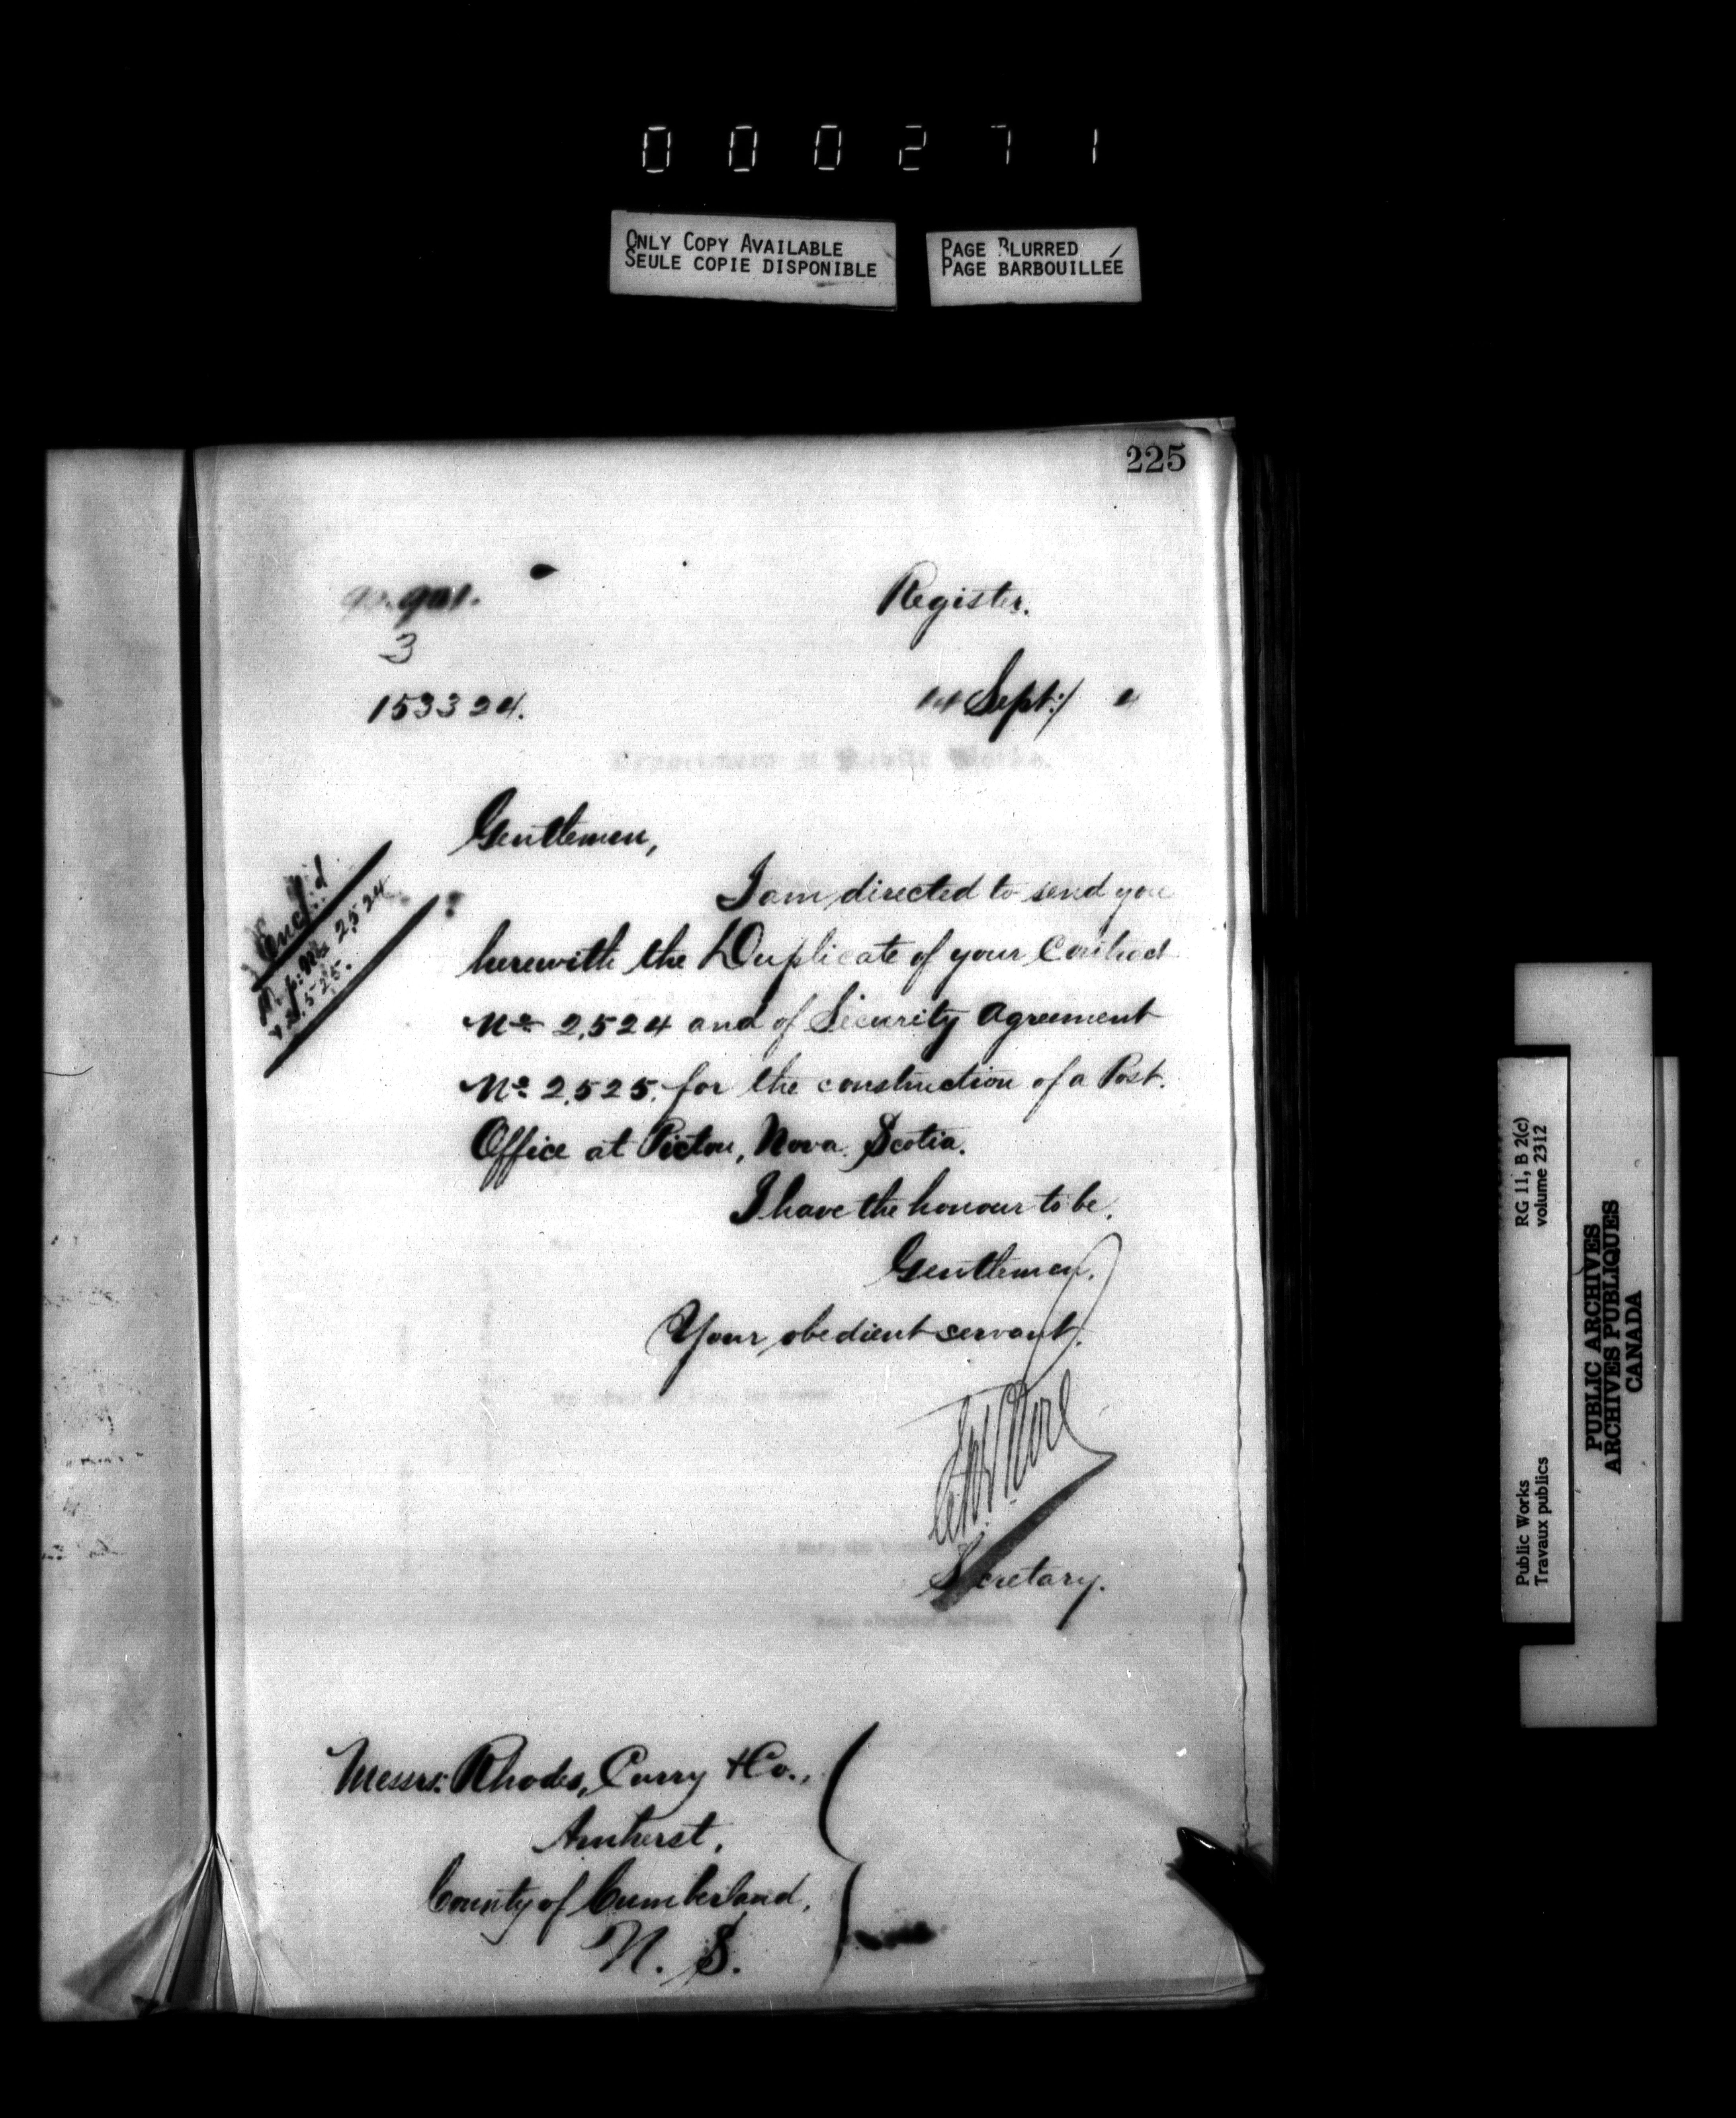 000271
ONLY COPY AVAILABLE
SEULE COPIE DISPONIBLE
PAGE BLURRED
PAGE BARBOUILLÉE
225
Register.
3
153324.
14 Sept:/ 4
Gentlemen,
Encl:d
Dup: Nos 2524
& 2,525.
I am directed to send you
herewith the Duplicate of your Contract
No 2,524 and of Security Agreement
No 2,525, for the construction of a Post
Office at Pictou, Nova Scotia.
I have the honour to be,
Gentlemen,
Your obedient servant,
Secretary.
Messrs: Rhodes, Curry & Co.,
Amherst,
County of Cumberland,
N. S.
RG 11, B 2(c)
volume 2312
Public Works
Travaux publics
PUBLIC ARCHIVES
ARCHIVES PUBLIQUES
CANADA